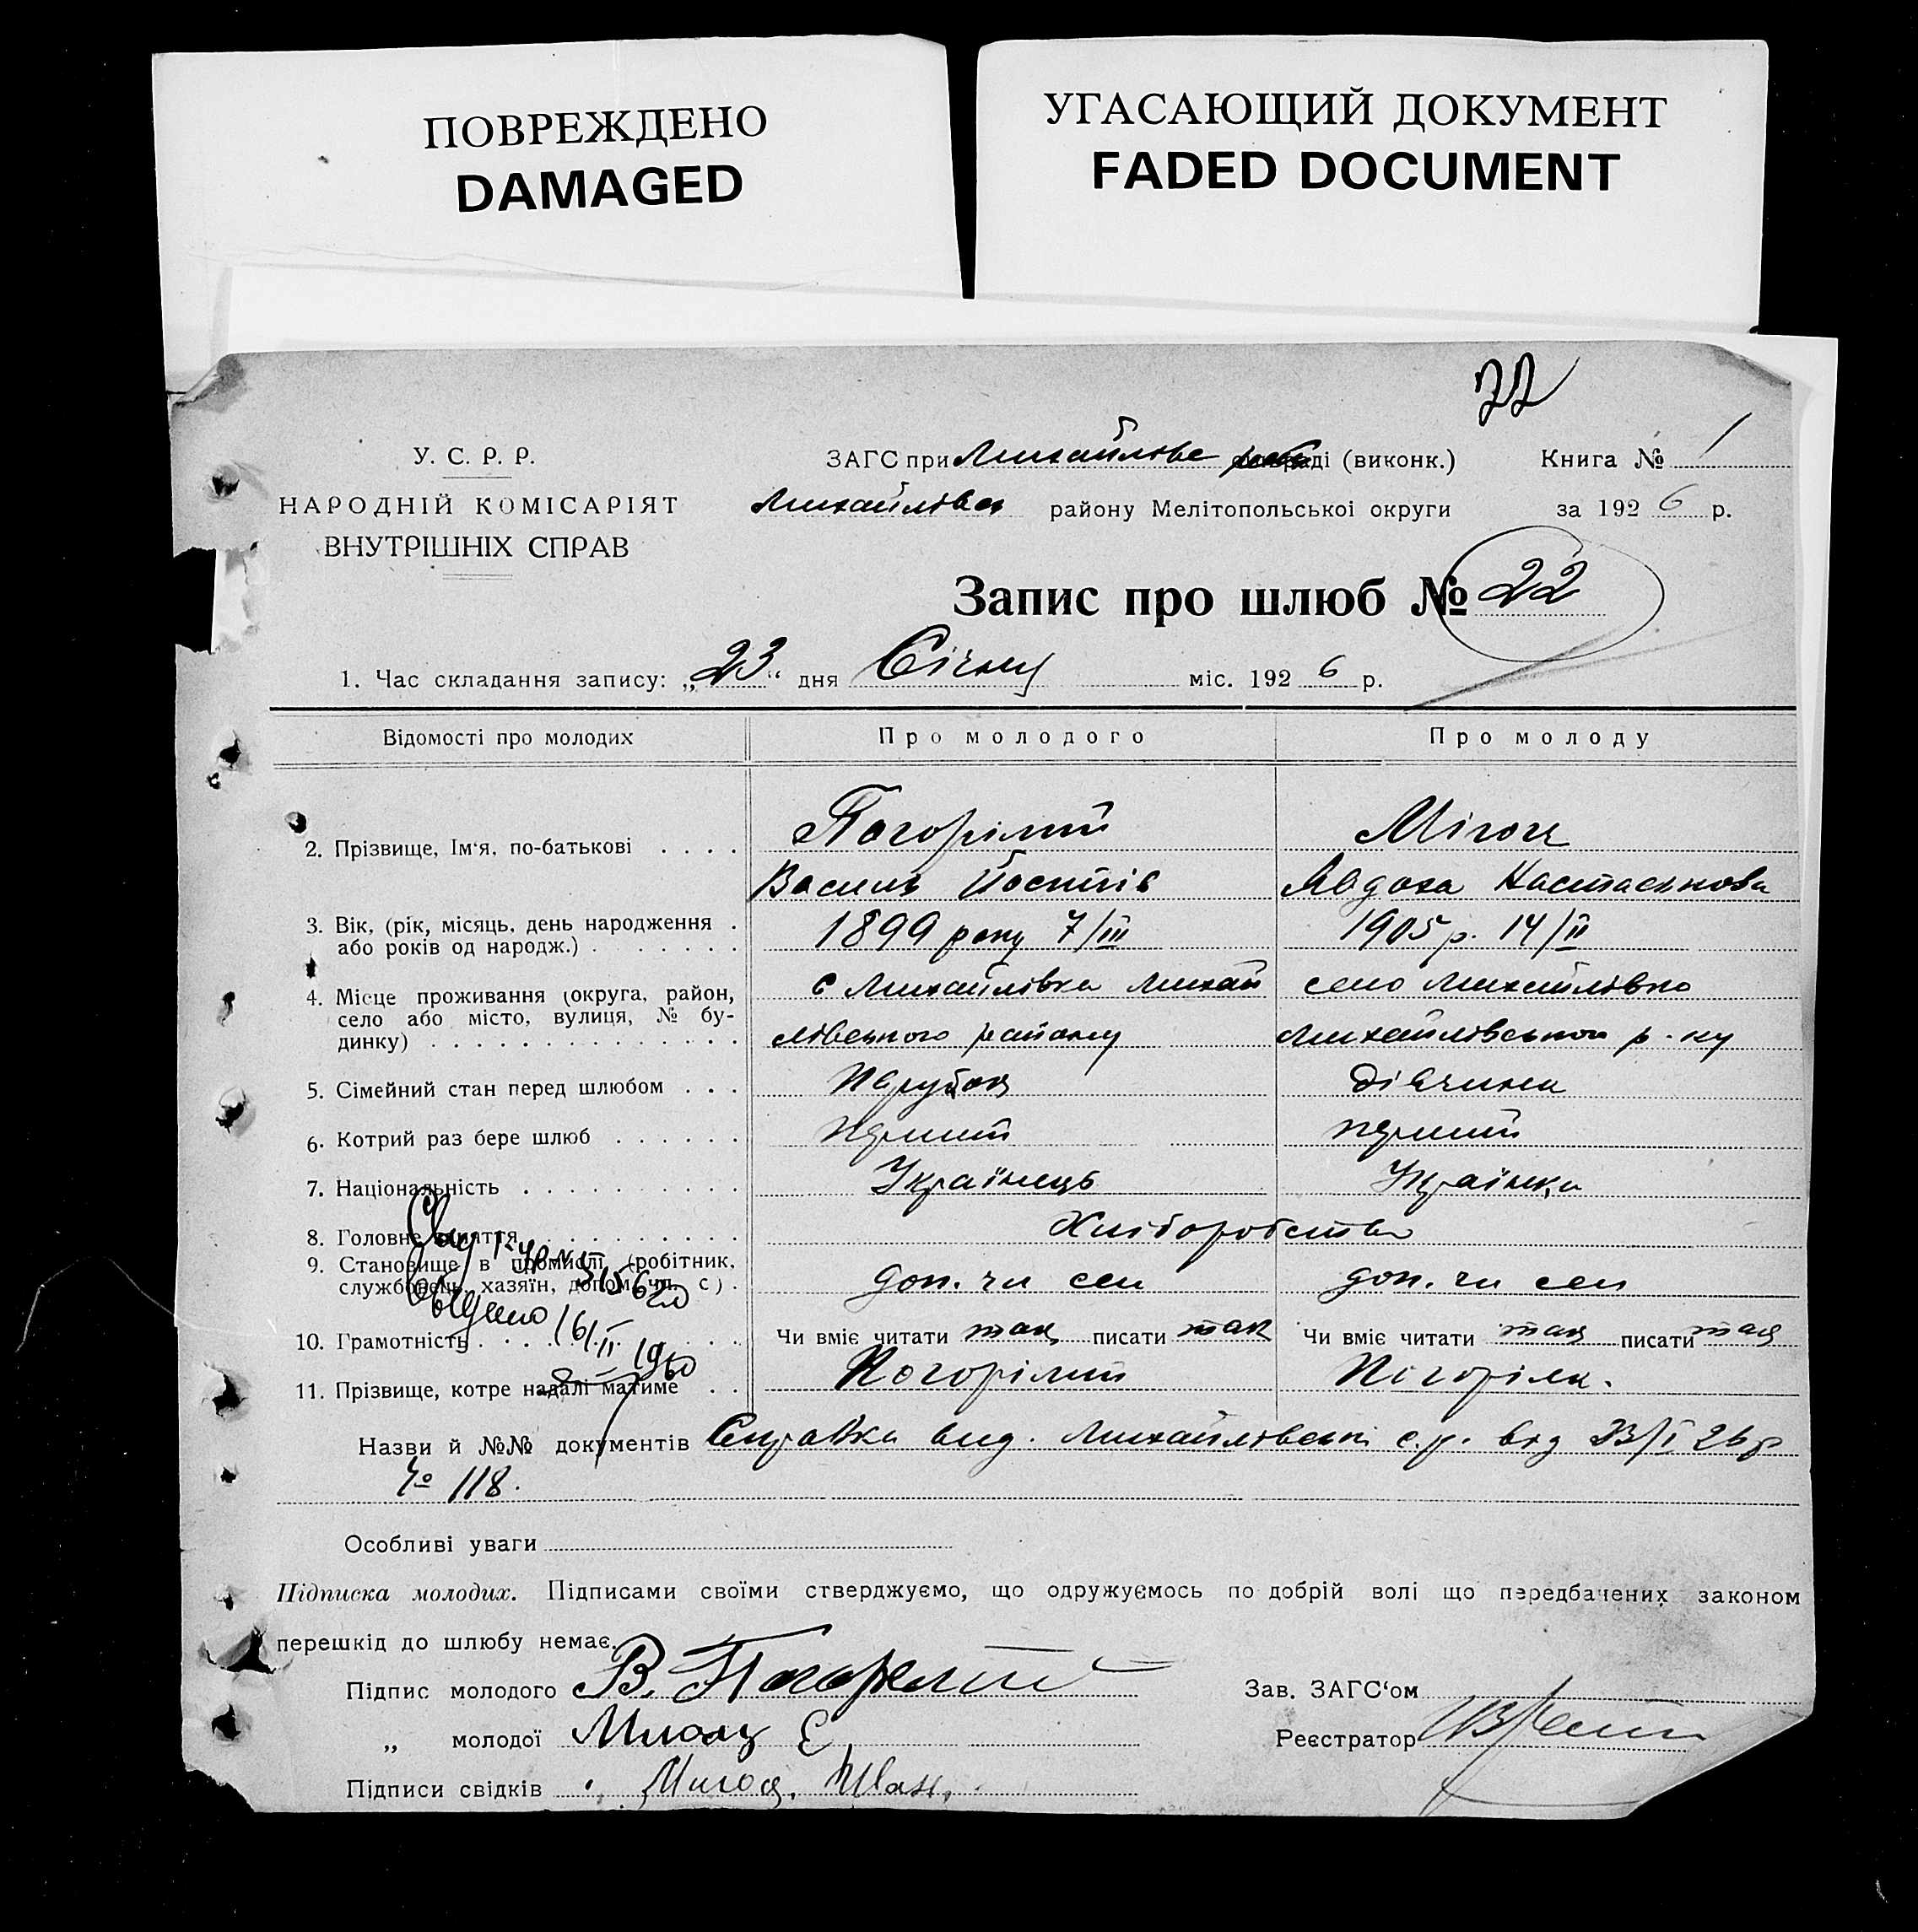 ПОВРЕЖДЕНО
DAMAGED
УГАСАЮЩИЙ ДОКУМЕНТ
FADED DOCUMENT
22
У. С. Р. Р.
НАРОДНІЙ КОМІСАРІЯТ
ВНУТРІШНІХ СПРАВ
ЗАГС при Михайлівс ді (виконк.) Книга № 1
Михайлівсь району Мелітопольської округи за 1926 р.
Запис про шлюб № 22
1. Час складання запису: „23“ дня Січня міс. 1926 р.
Відомості про молодих Про молодого Про молоду
2. Прізвище, Ім‘я, по-батькові . . . . Погорілий
Василь Йосипів Явдоха
3. Вік, (рік, місяць, день народження . або років од народж.) . . . . . . . 1899 року 7/III 1905 р. 14/II
4. Місце проживання (округа, район, с Михайлівка Михай село Михайлівка
село або місто, вулиця, № бу-
динку) . . . . . . . . . . . . . . . лівського району Михайлівського р-ну
5. Сімейний стан перед шлюбом . . . Парубок дівчина
6. Котрий раз бере шлюб . . . . . . Перший перший
7. Національність . . . . . . . . . . Українець Українка
8. Головне заняття . . . . . . . . . . Хліборобство
9. Становище в промислі (робітник,
службовець, хазяїн, допом. чл. с) . доп. чл сем доп. чл сем
10. Грамотність . . . . . . . . Чи вміє читати так писати так Чи вміє читати так писати так
11. Прізвище, котре надалі матиме . . Погорілий Погоріла.
16/II 1960
Назви й №№ документів Справка вид. Михайлівськ с.р. від 23/I 26 р
№ 118.
Особливі уваги
Підписка молодих. Підписами своїми стверджуємо, що одружуємось по добрій волі що передбачених законом
перешкід до шлюбу немає.
Підпис молодого В. Погорелий Зав. ЗАГС‘ом
„ молодої Е Реєстратор
Підписи свідків